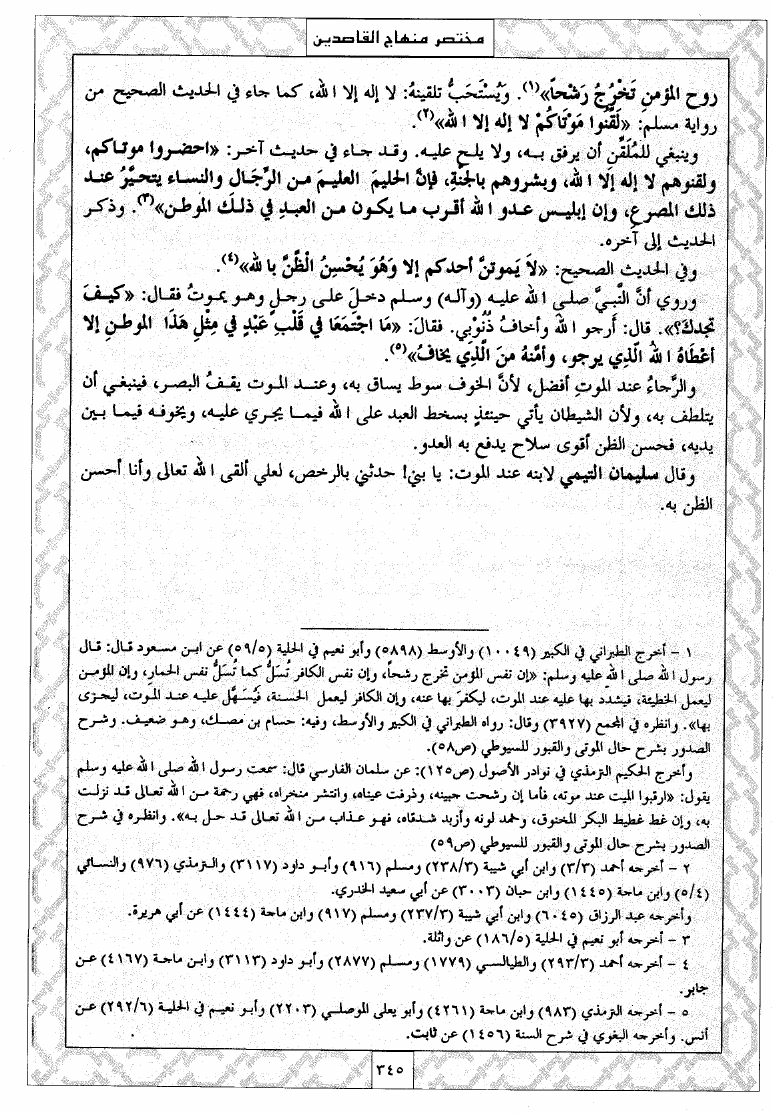 مختصر منهاج القاصدين
روح المؤمنِ تَخْرُجُ رَشْحاً»(١). ويُسْتَحَبُّ تلقينهُ: لا إله إلا الله، كما جاء في الحديث الصحيح من
رواية مسلم: «لَقِّنُوا مَوْتَاكُمْ لا إله إلا الله»(٢).
وينبغي للمُلَقِّن أن يرفق بـه، ولا يلـح عليـه. وقـد جـاء في حديـث آخـر: «احضـروا موتـاكم،
ولقنوهم لا إله إلا الله، وبشروهم بالجنَّةِ، فإنَّ الحليمَ العليمَ مـن الرِّجَال والنساء يتحيَّرُ عنـد
ذلك المصرعِ، وإن إبليـس عـدو الله أقـرب مـا يكـون مـن العبـدِ في ذلـكَ الموطـن»(٣). وذكـر
الحديث إلى آخره.
وفي الحديث الصحيح: «لاَ يَموتنَّ أحدكم إلا وَهُوَ يُحْسِنُ الظَّنَّ بالله»(٤).
وروي أنَّ النَّبيَّ صلـى الله عليـه (وآلـه) وسلم دخـلَ علـى رجـلٍ وهـو يمـوتُ فقـال: «كيـفَ
تجدكَ؟». قال: أرجو الله وأخافُ ذُنُوبي. فقالَ: «مَا اجْتَمَعَا في قَلْبِ عَبْدٍ في مِثْلِ هَذَا الموطـنِ إلا
أعْطَاهُ الله الَّذي يرجو، وأمَّنهُ منَ الَّذِي يخافُ»(٥).
والرَّجاءُ عند الموتِ أفضل، لأنَّ الخوف سوط يساق به، وعنـد المـوت يقـفُ البصـر، فينبغـي أن
يتلطف به، ولأن الشيطان يأتي حينئذٍ بسخط العبد على الله فيمـا يجـري عليـه، ويخوفـه فيمـا بـين
يديه، فحسن الظن أقوى سلاح يدفع به العدو.
وقال سليمان التيمي لابنه عند الموت: يا بني! حدثني بالرخص، لعلي ألقى الله تعالى وأنا أحسن
الظن به.
١ - أخرج الطبراني في الكبير (١٠٠٤٩) والأوسط (٥٨٩٨) وأبو نعيم في الحلية (٥٩/٥) عن ابـن مسـعود قـال: قـال
رسول الله صلى الله عليه وسلم: «إن نفس المؤمن تخرج رشحاً، وإن نفس الكافر تُسَلُّ كما تُسَلُّ نفس الحمار، وإن المؤمن
ليعمل الخطيئة، فيشدد بها عليه عند الموت، ليكفرَ بها عنه، وإن الكافر ليعمل الحسنة، فيُسَهَّل عليـه عنـد المـوت، ليجـزى
بها». وانظره في المجمع (٣٩٢٧) وقال: رواه الطبراني في الكبير والأوسط، وفيه: حسام بن مصـك، وهـو ضعيـف. وشـرح
الصدور بشرح حال الموتى والقبور للسيوطي (ص٥٨).
وأخرج الحكيم الترمذي في نوادر الأصول (ص١٢٥): عن سلمان الفارسي قال: سمعت رسول الله صلى الله عليه وسلم
يقول: «ارقبوا الميت عند موته، فأما إن رشحت جبينه، وذرفت عيناه، وانتشر منخراه، فهي رحمة مـن الله تعالى قـد نزلـت
به، وإن غط غطيط البكر المخنوق، وخمد لونه وأزبد شدقاه، فهـو عـذاب مـن الله تعالى قـد حـل بـه». وانظره في شـرح
الصدور بشرح حال الموتى والقبور للسيوطي (ص٥٩)
٢ - أخرجه أحمد (٣/٣) وابن أبي شيبة (٢٣٨/٣) ومسلم (٩١٦) وأبـو داود (٣١١٧) والـترمذي (٩٧٦) والنسائي
(٥/٤) وابن ماجة (١٤٤٥) وابن حبان (٣٠٠٣) عن أبي سعيد الخدري.
وأخرجه عبد الرزاق (٦٠٤٥) وابن أبي شيبة (٢٣٧/٣) ومسلم (٩١٧) وابن ماجة (١٤٤٤) عن أبي هريرة.
٣ - أخرجه أبو نعيم في الحلية (١٨٦/٥) عن واثلة.
٤ - أخرجه أحمد (٢٩٣/٣) والطيالسي (١٧٧٩) ومسلم (٢٨٧٧) وأبـو داود (٣١١٣) وابـن ماجـة (٤١٦٧) عـن
جابر.
٥ - أخرجه الترمذي (٩٨٣) وابن ماجة (٤٢٦١) وأبو يعلى الموصلـي (٢٢٠٣) وأبـو نعيـم في الحليـة (٢٩٢/٦) عـن
أنس. وأخرجه البغوي في شرح السنة (١٤٥٦) عن ثابت.
٣٤٥